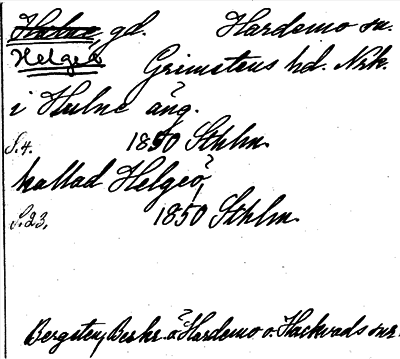 Hulne, gd. Hardemo sn.
Helgeö Grimstens hd. Nrk.
i Hulne äng.
S.4. 1850 Sthlm
kallad Helgeö,
S.23. 1850 Sthlm
Bergsten, Beskr. ö. Hardemo o. Hackvads snr.